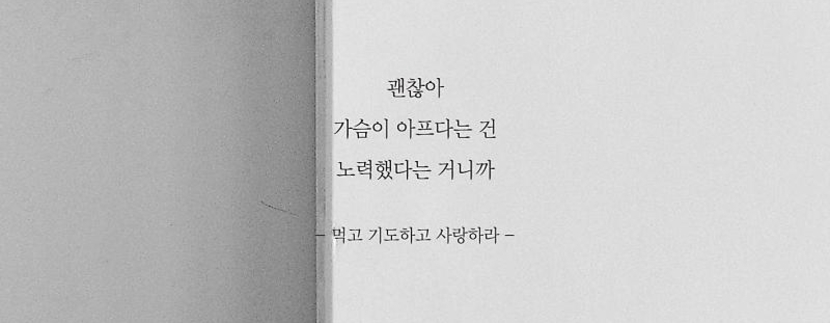 괜찮아
가슴이 아프다는 건
노력했다는 거니까
– 먹고 기도하고 사랑하라 –